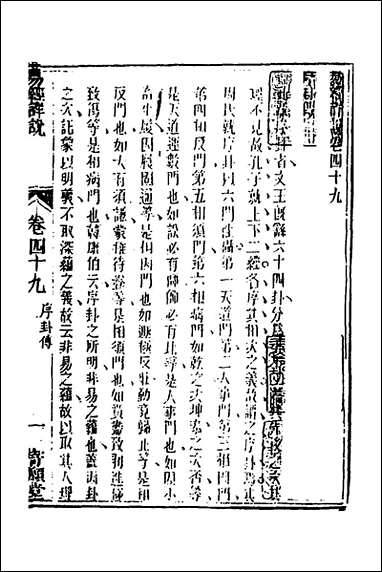 易經詳說卷四十九
序卦傳
序卦者文王既繇六十四卦分為上下二篇其先後之次其
理不見故孔子就上下二經各序其相次之義故謂之序卦焉其
周氏就序卦以六門往攝第一天道門第二人事門第三相因門
第四相反門第五相須門第六相病門如乾之次坤泰之次否等
是天道運數門也如訟必有師師必有比等是人事門也如因小
畜生履因履故通等是相因門也如遯極反壯動竟歸止等是相
反門也如大有須謙蒙稚待養等是相須門也如賁盡致剝進極
致傷等是相病門也韓康伯云序卦之所明非易之蘊也蓋因卦
之次託象以明義不取深蘊之義故云非易之蘊故以取其人理
易經詳說
卷四十九
序卦傳
一
願堂